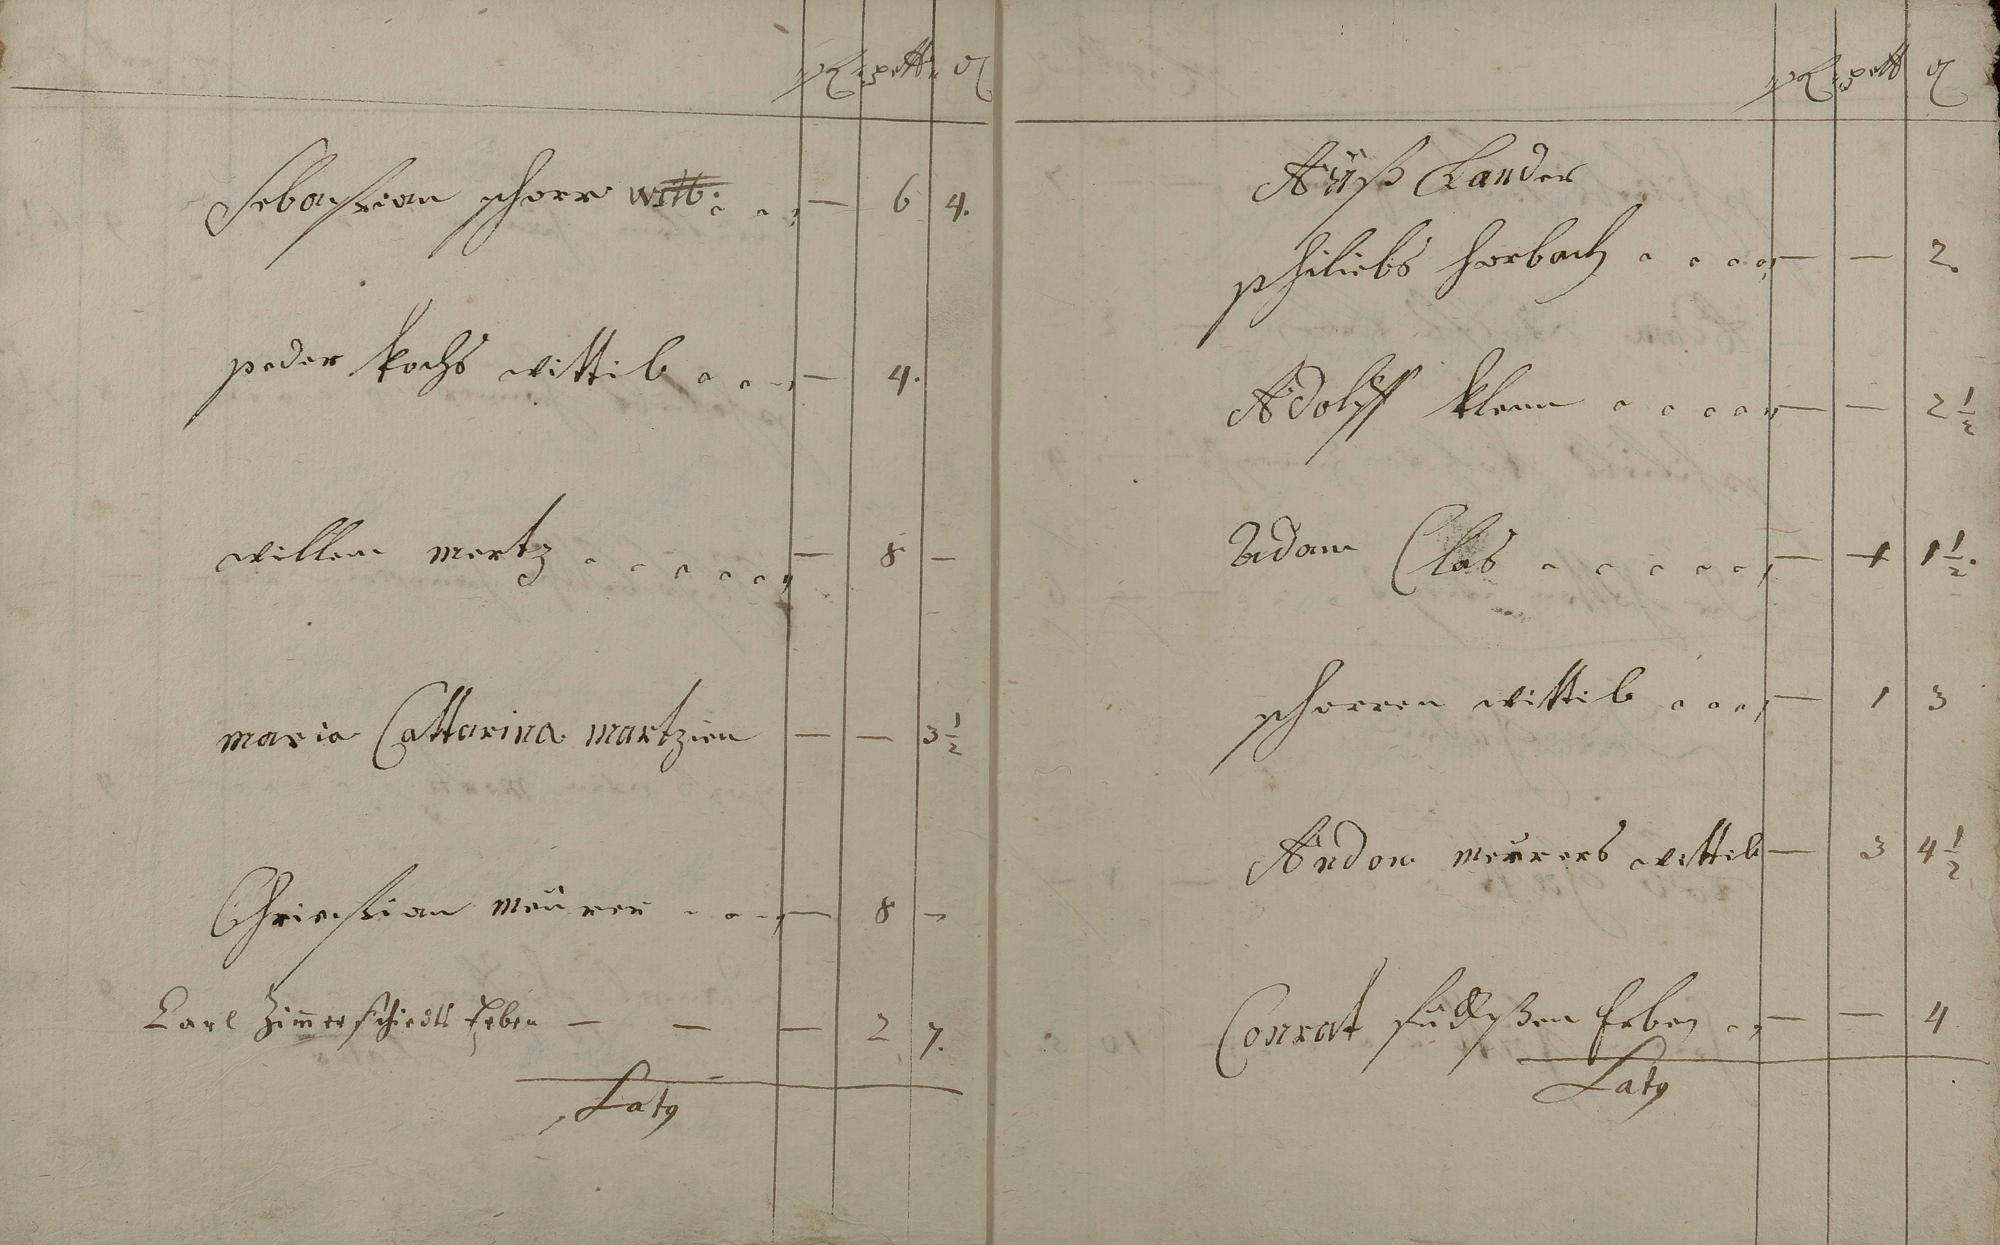 Sebastian schorr witb: — 6 4.
peder Kochs wittib — 4.
willem mertz — 8 —
maria Cattarina martzien — — 3 1/2
Christian meürer — 8 —
Carl Zimmerschiedts Erben — — — 2 7.
Laty
Auß Lander
philiebs horbach — — 2.
Adolff klein — — 2 1/2
Adam Clas — 1 1 1/2.
schorren wittib — 1 3
Andon meurers wittib — 3 4 1/2
Conrat Erben — — 4
Laty